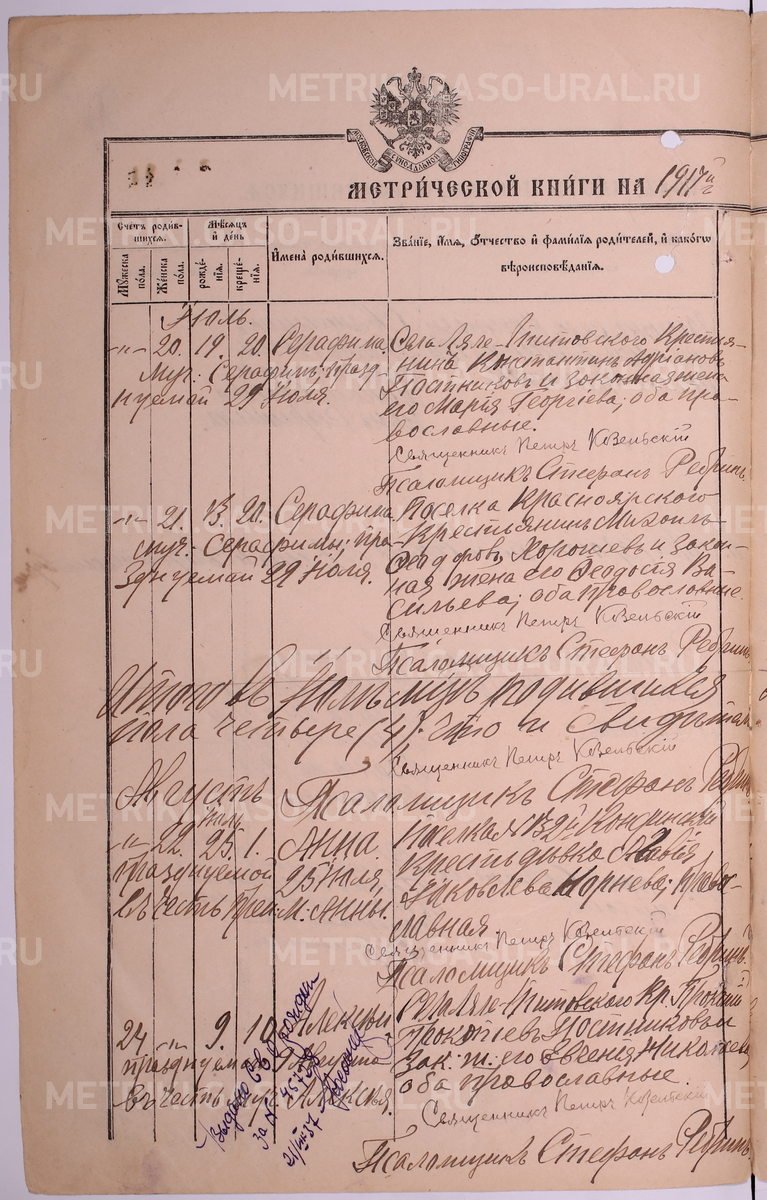 МОСКОВСКОЙ СИНОДАЛЬНОЙ ТИПОГРАФІИ
МЕТРИЧЕСКОЙ КНИГИ НА 1917й г
Счетъ родившихся.
Мужеска пола.
Женска пола.
Мѣсяцъ и день
рожденія.
крещенія.
Имена родившихся.
Званіе, имя, отчество и фамилія родителей, и какого вѣроисповѣданія.
Іюль.
-"- 20. 19. 20. Серафима
муч: Серафимы; празд
нуемой 29 Іюля.
Села Ляле-Титовского Крестья-
нинъ Константинъ Адріановъ
Постниковъ и законная жена
его Марія Георгіева; оба пра-
вославные.
Священникъ Петръ Козельскій
Псаломщикъ Стефанъ Ребринъ
-"- 21. 13. 20. Серафима
муч: Серафимы; пра-
зднуемой 29 Іюля.
Поселка Красноярского
Крестьянинъ Михаилъ
Ѳеодоровъ Хорошевъ и закон-
ная жена его Ѳеодосія Ва-
сильева; оба православные.
Священникъ Петръ Козельскій
Псаломщикъ Стефанъ Ребринъ
Итого въ Іюлѣ мцѣ родившихся
пола четыре (4). что и свидѣтел
Священникъ Петръ Козельскій
Псаломщикъ Стефанъ Ребрин
Августъ
Іюль
" 22. 25. 1. Анна.
празднуемой 25 Іюля,
въ честь Анны.
Поселка
Крестьян дѣвка
Яковлева Корнева; право-
славная.
Священникъ Петръ Козельскій
Псаломщикъ Стефанъ Ребринъ.
24 " 9. 10 Алексѣй
празднуем 9 Августа
въ честь муч: Алексѣя.
Села Ляле-Титовского Кр.
Прокопіев Постниковъ и
зак: ж: его Евгенія Николаева
оба православные.
Священникъ Петръ Козельскій
Псаломщикъ Стефанъ Ребринъ.
Выдано св о рождении
за №
METRIKI.GASO-URAL.RU